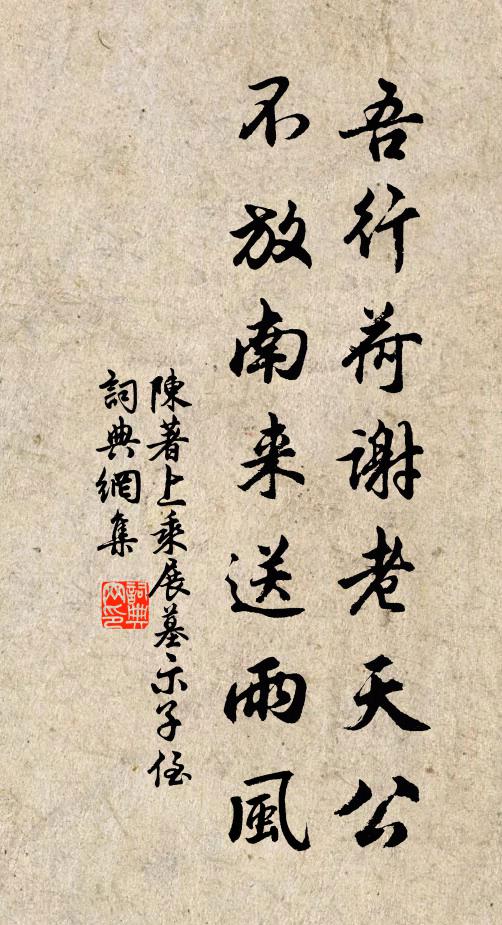 吾行荷谢老天公
不放南来送雨風
陳著上乘展墓示子侄
詞典網集
詞典网印